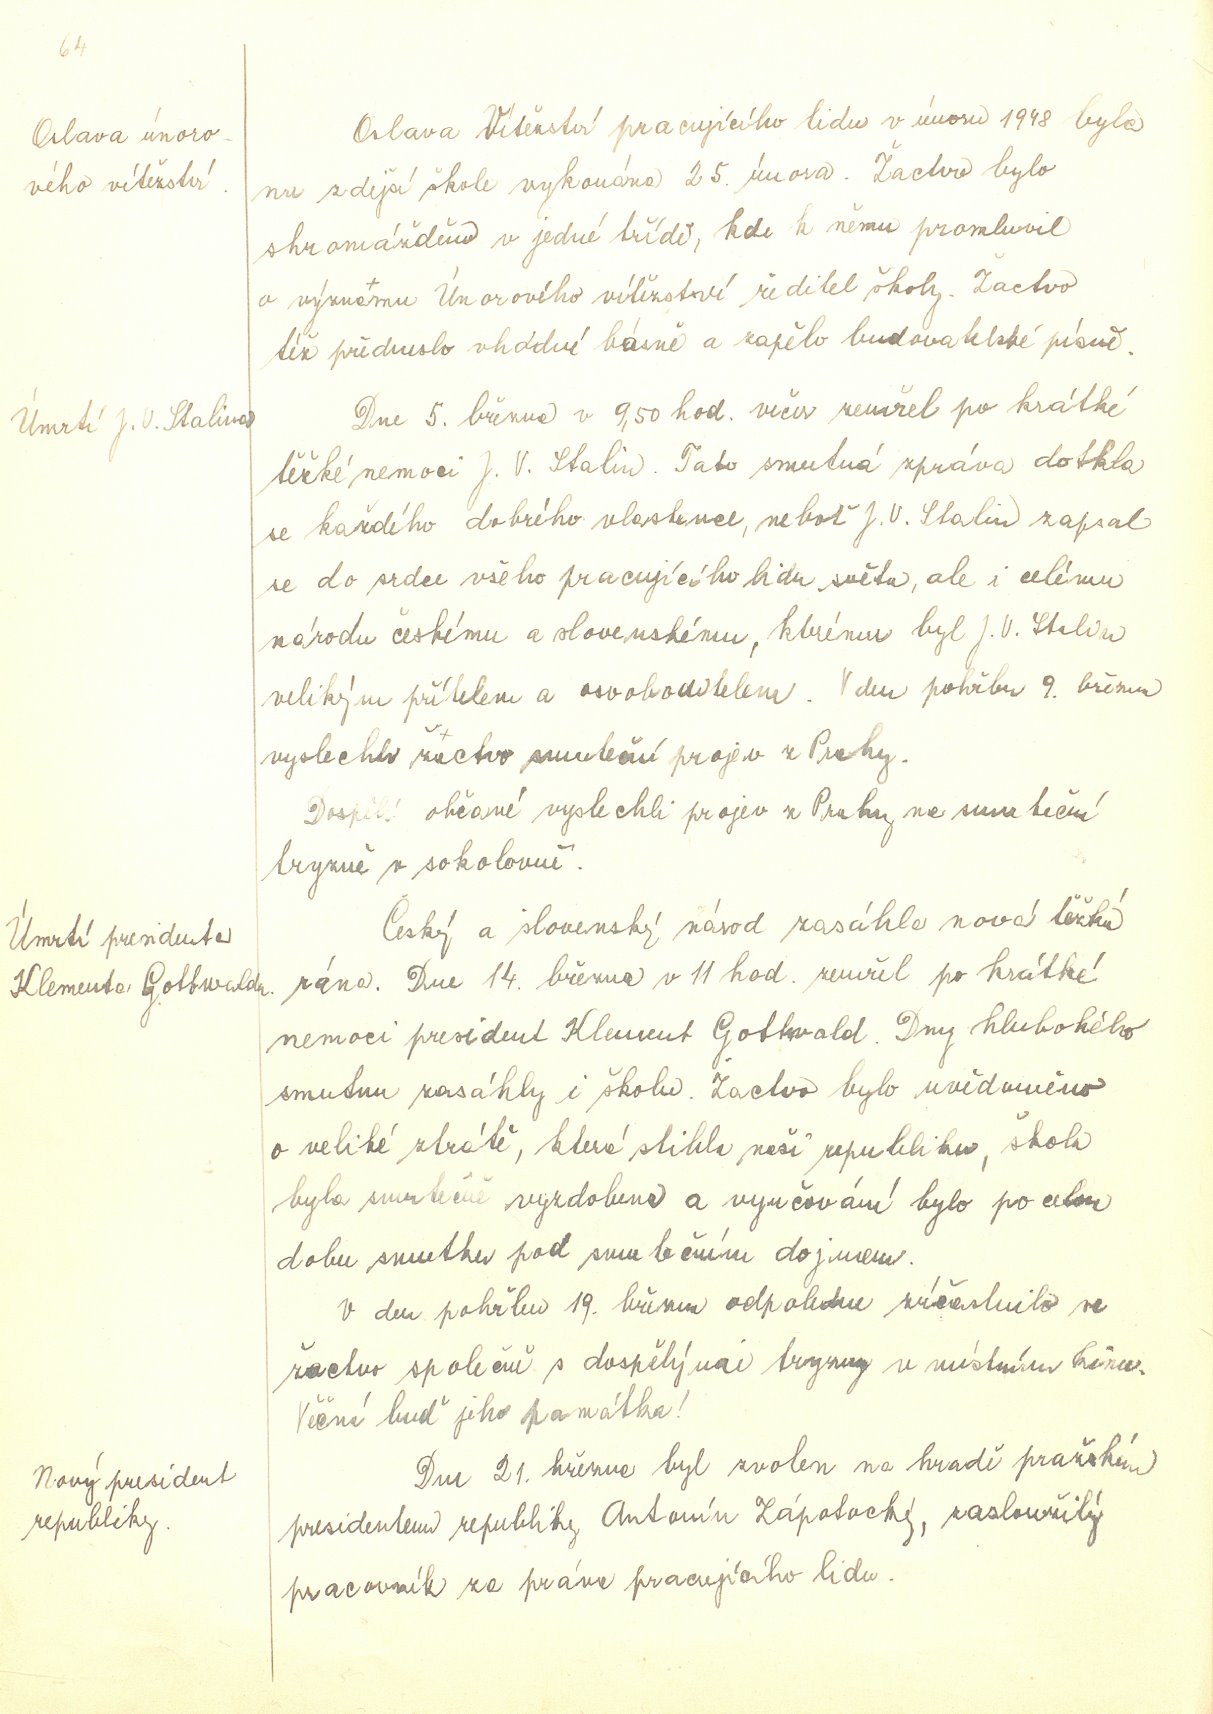 64
Oslava únoro-
vého vítězství.
Oslava Vítězství pracujícího lidu v únoru 1948 byla
na zdejší škole vykonána 25. února. Žactvo bylo
shromážděno v jedné třídě, kde k němu promluvil
o významu Únorového vítězství ředitel školy. Žactvo
též předneslo vhodné básně a zapělo budovatelské písně.
Úmrtí J. V. Stalina
Dne 5. března v 9,50 hod. večer zemřel po krátké
těžké nemoci J. V. Stalin. Tato smutná zpráva dotkla
se každého dobrého vlastence, neboť J. V. Stalin zapsal
se do srdce všeho pracujícího lidu světa, ale i celému
národu českému a slovenskému, kterému byl J. V. Stalin
velikým přítelem a osvoboditelem. V den pohřbu 9. března
vyslechlo žactvo smuteční projev z Prahy.
Dospělí občané vyslechli projev z Prahy na smuteční
tryzně v sokolovně.
Úmrtí presidenta
Klementa Gottwalda.
Český a slovenský národ zasáhla nová těžká
rána. Dne 14. března v 11 hod. zemřel po krátké
nemoci president Klement Gottwald. Dny hlubokého
smutku zasáhly i školu. Žactvo bylo uvědoměno
o veliké ztrátě, která stihla naši republiku, škola
byla smutečně vyzdobena a vyučování bylo po celou
dobu smutku pod smutečním dojmem.
V den pohřbu 19. března odpoledne zúčastnilo se
žactvo společně s dospělými tryzny v místním kinu.
Věčná buď jeho památka!
Nový president
republiky.
Dne 21. března byl zvolen na hradě pražském
presidentem republiky Antonín Zápotocký, zasloužilý
pracovník za práva pracujícího lidu.